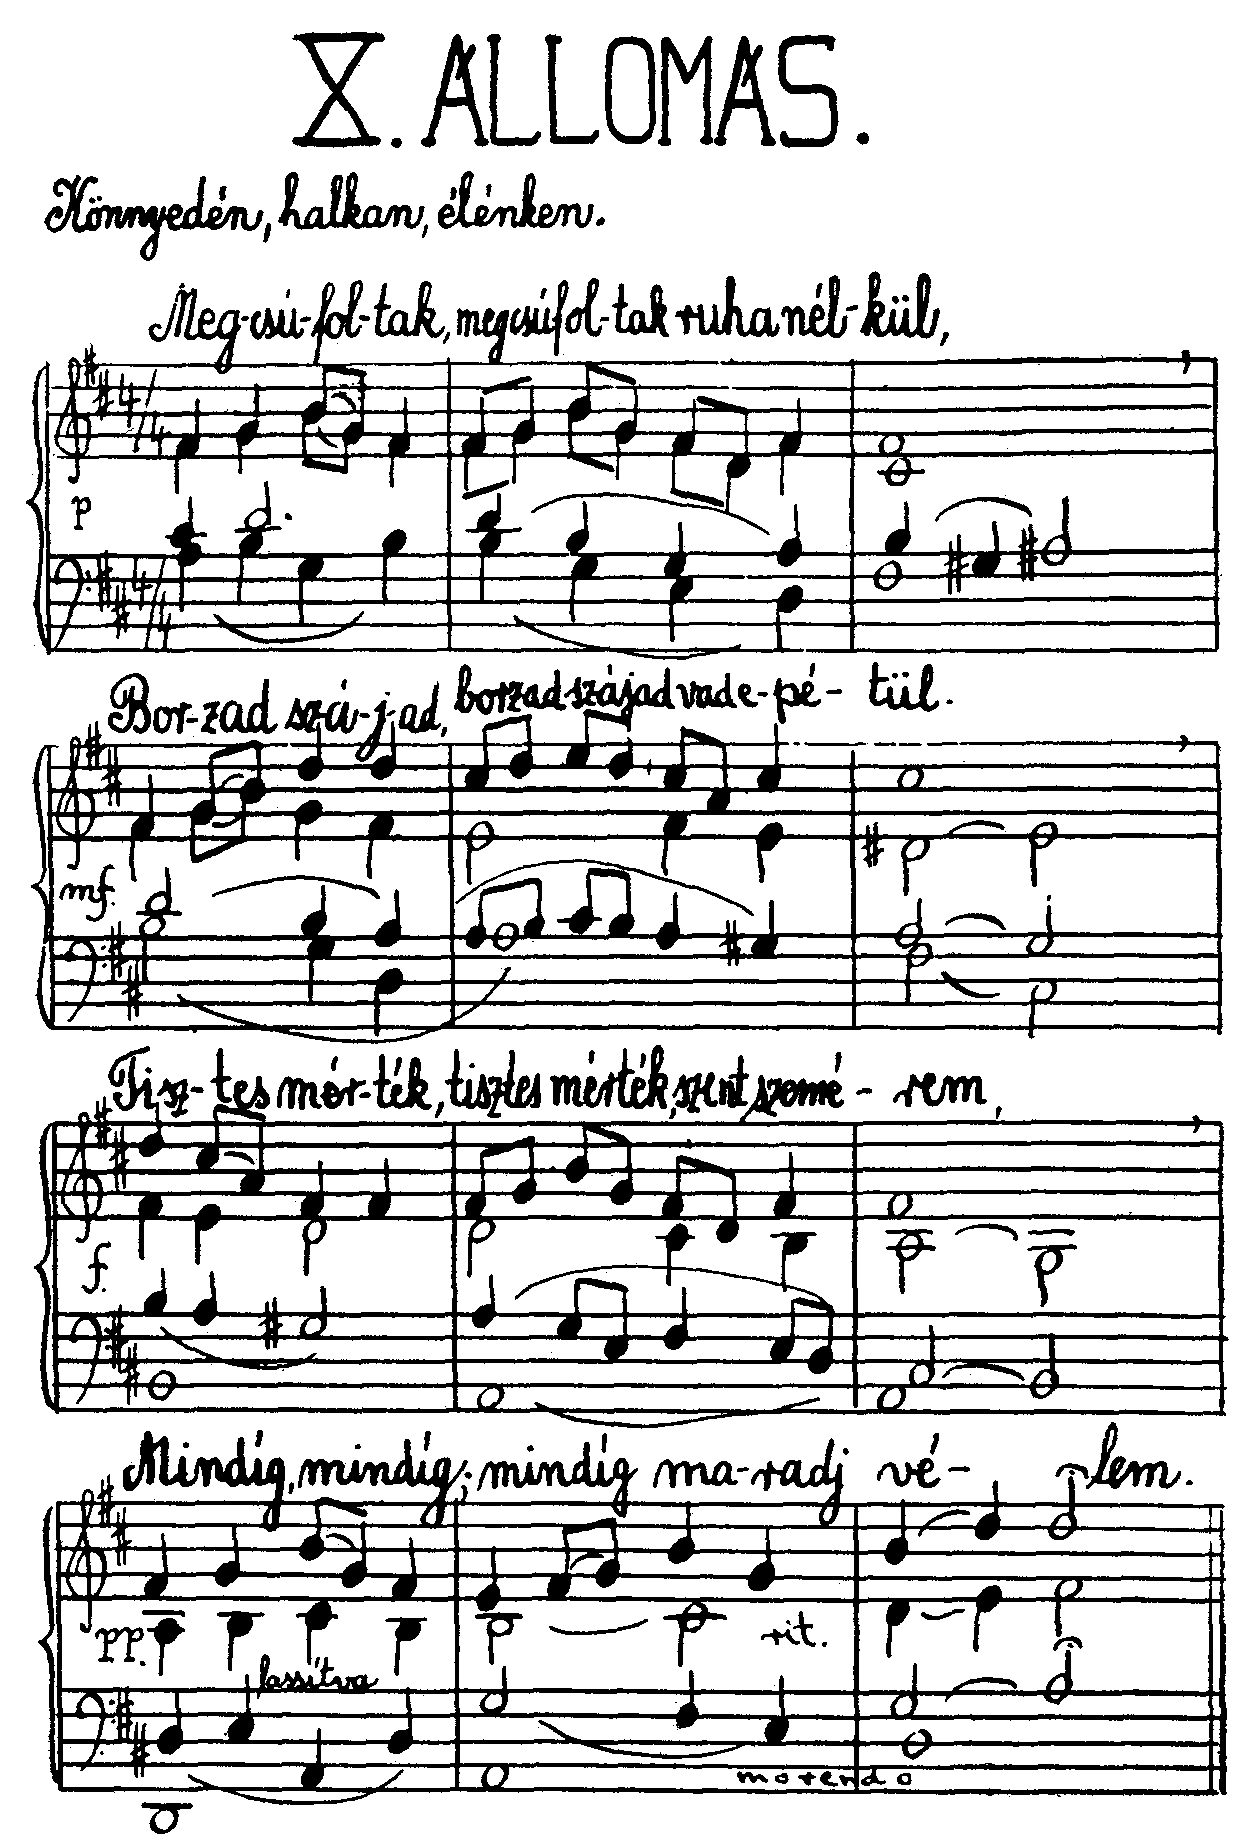 X. ALLOMAS.
Könnyedén, halkan, élénken.
Meg-csú-fol-tak, megcsúfol-tak ruha nél-kül,
4/4
p
4/4
Bor-zad szá-j-ad, borzad szájad vad e-pé-tül.
mf.
Tisz-tes mér-ték, tisztes mérték, szent szemé-rem,
f.
Mindíg, mindíg, mindíg ma-radj vé-lem.
pp. rit.
lassítva
morendo